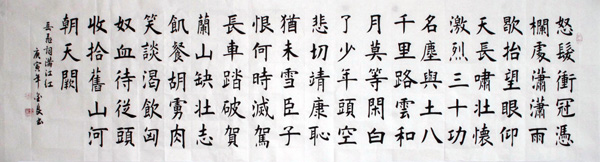 怒髮衝冠憑
欄處瀟瀟雨
歇抬望眼仰
天長嘯壯懷
激烈三十功
名塵與土八
千里路雲和
月莫等閑白
了少年頭空
悲切靖康恥
猶未雪臣子
恨何時滅駕
長車踏破賀
蘭山缺壯志
飢餐胡虜肉
笑談渴飲匈
奴血待從頭
收拾舊山河
朝天闕
岳飛詞滿江紅
庚寅年書